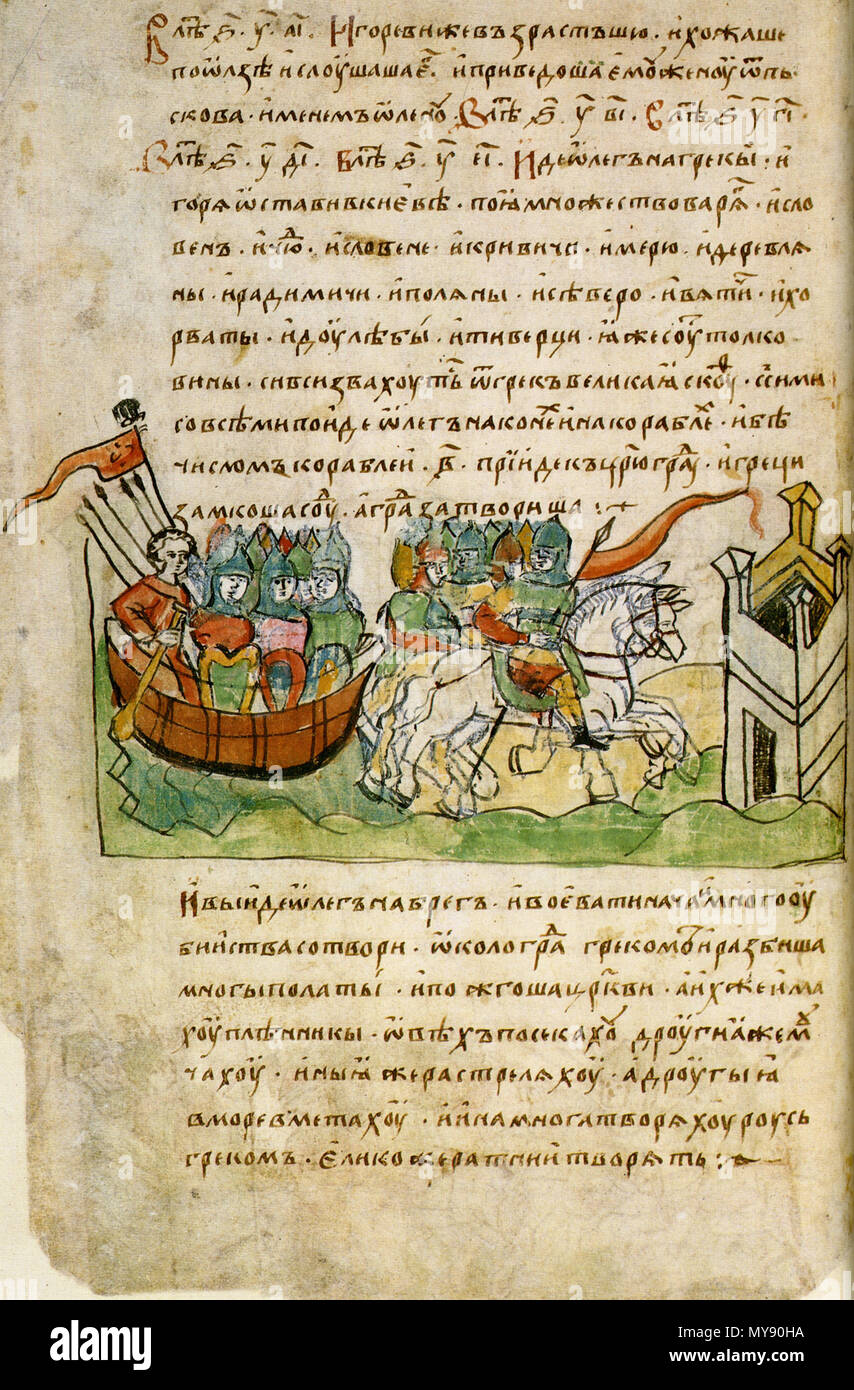 В лѣⷮ ҂ѕ҃. у҃. а҃і. Игореви же възрастъшю. и хожаше
по Ѡлзѣ и слоушаша еⷢ҇. и приведоша емоу женоу ѿ Пь
скова. именемъ Ѡленоу. В лѣⷮ ҂ѕ҃. у҃ в҃і. В лѣⷮ ҂ѕ҃ у҃ г҃і.
В лѣⷮ ҂ѕ҃. у҃ д҃і. В лѣⷮ ҂ѕ҃. у҃ е҃і. Иде Ѡлегъ на грекы. и
горѧ ѡставив Киевѣ. поꙗ множество варѧⷢ. и сло
венъ. и чюⷣ. и словене. и кривичи. и мерю. и деревлѧ
ны. и радимичи. и полѧны. и сѣверо. и вѧтичи. и хо
рваты. и доулѣбы. и тиверци. ꙗже соуⷮ толко
вины. си вси звахоутьⷭ ѿ грекъ Великаꙗ Скоуⷴ. с сими
со всѣми поиде Ѡлегъ на конеⷯ и на кораблеⷯ. и бѣ
числомъ кораблеи. в҃. прїиде къ цр҃юграⷣу. и греци
замкоша Соуⷣ. а граⷣ затвориша
И выиде Ѡлегъ на брегъ. и воевати начаⷮ. и много оу
биист
ва сотвори. ѡколо граⷣ грекомъ. и разбиша
многы полаты. и пожгоша црк҃ви. а ихже има
хоу плѣнникы. ѡвѣхъ посекахоу дроугиꙗ же моу
чахоу. иныꙗ же растрелѧхоу. а дроугыꙗ
в море вметахоу. и ина многа творѧхоу роусь
грекомъ. елико же ратнии творѧть
alamy
Image ID: MY90HA
www.alamy.com